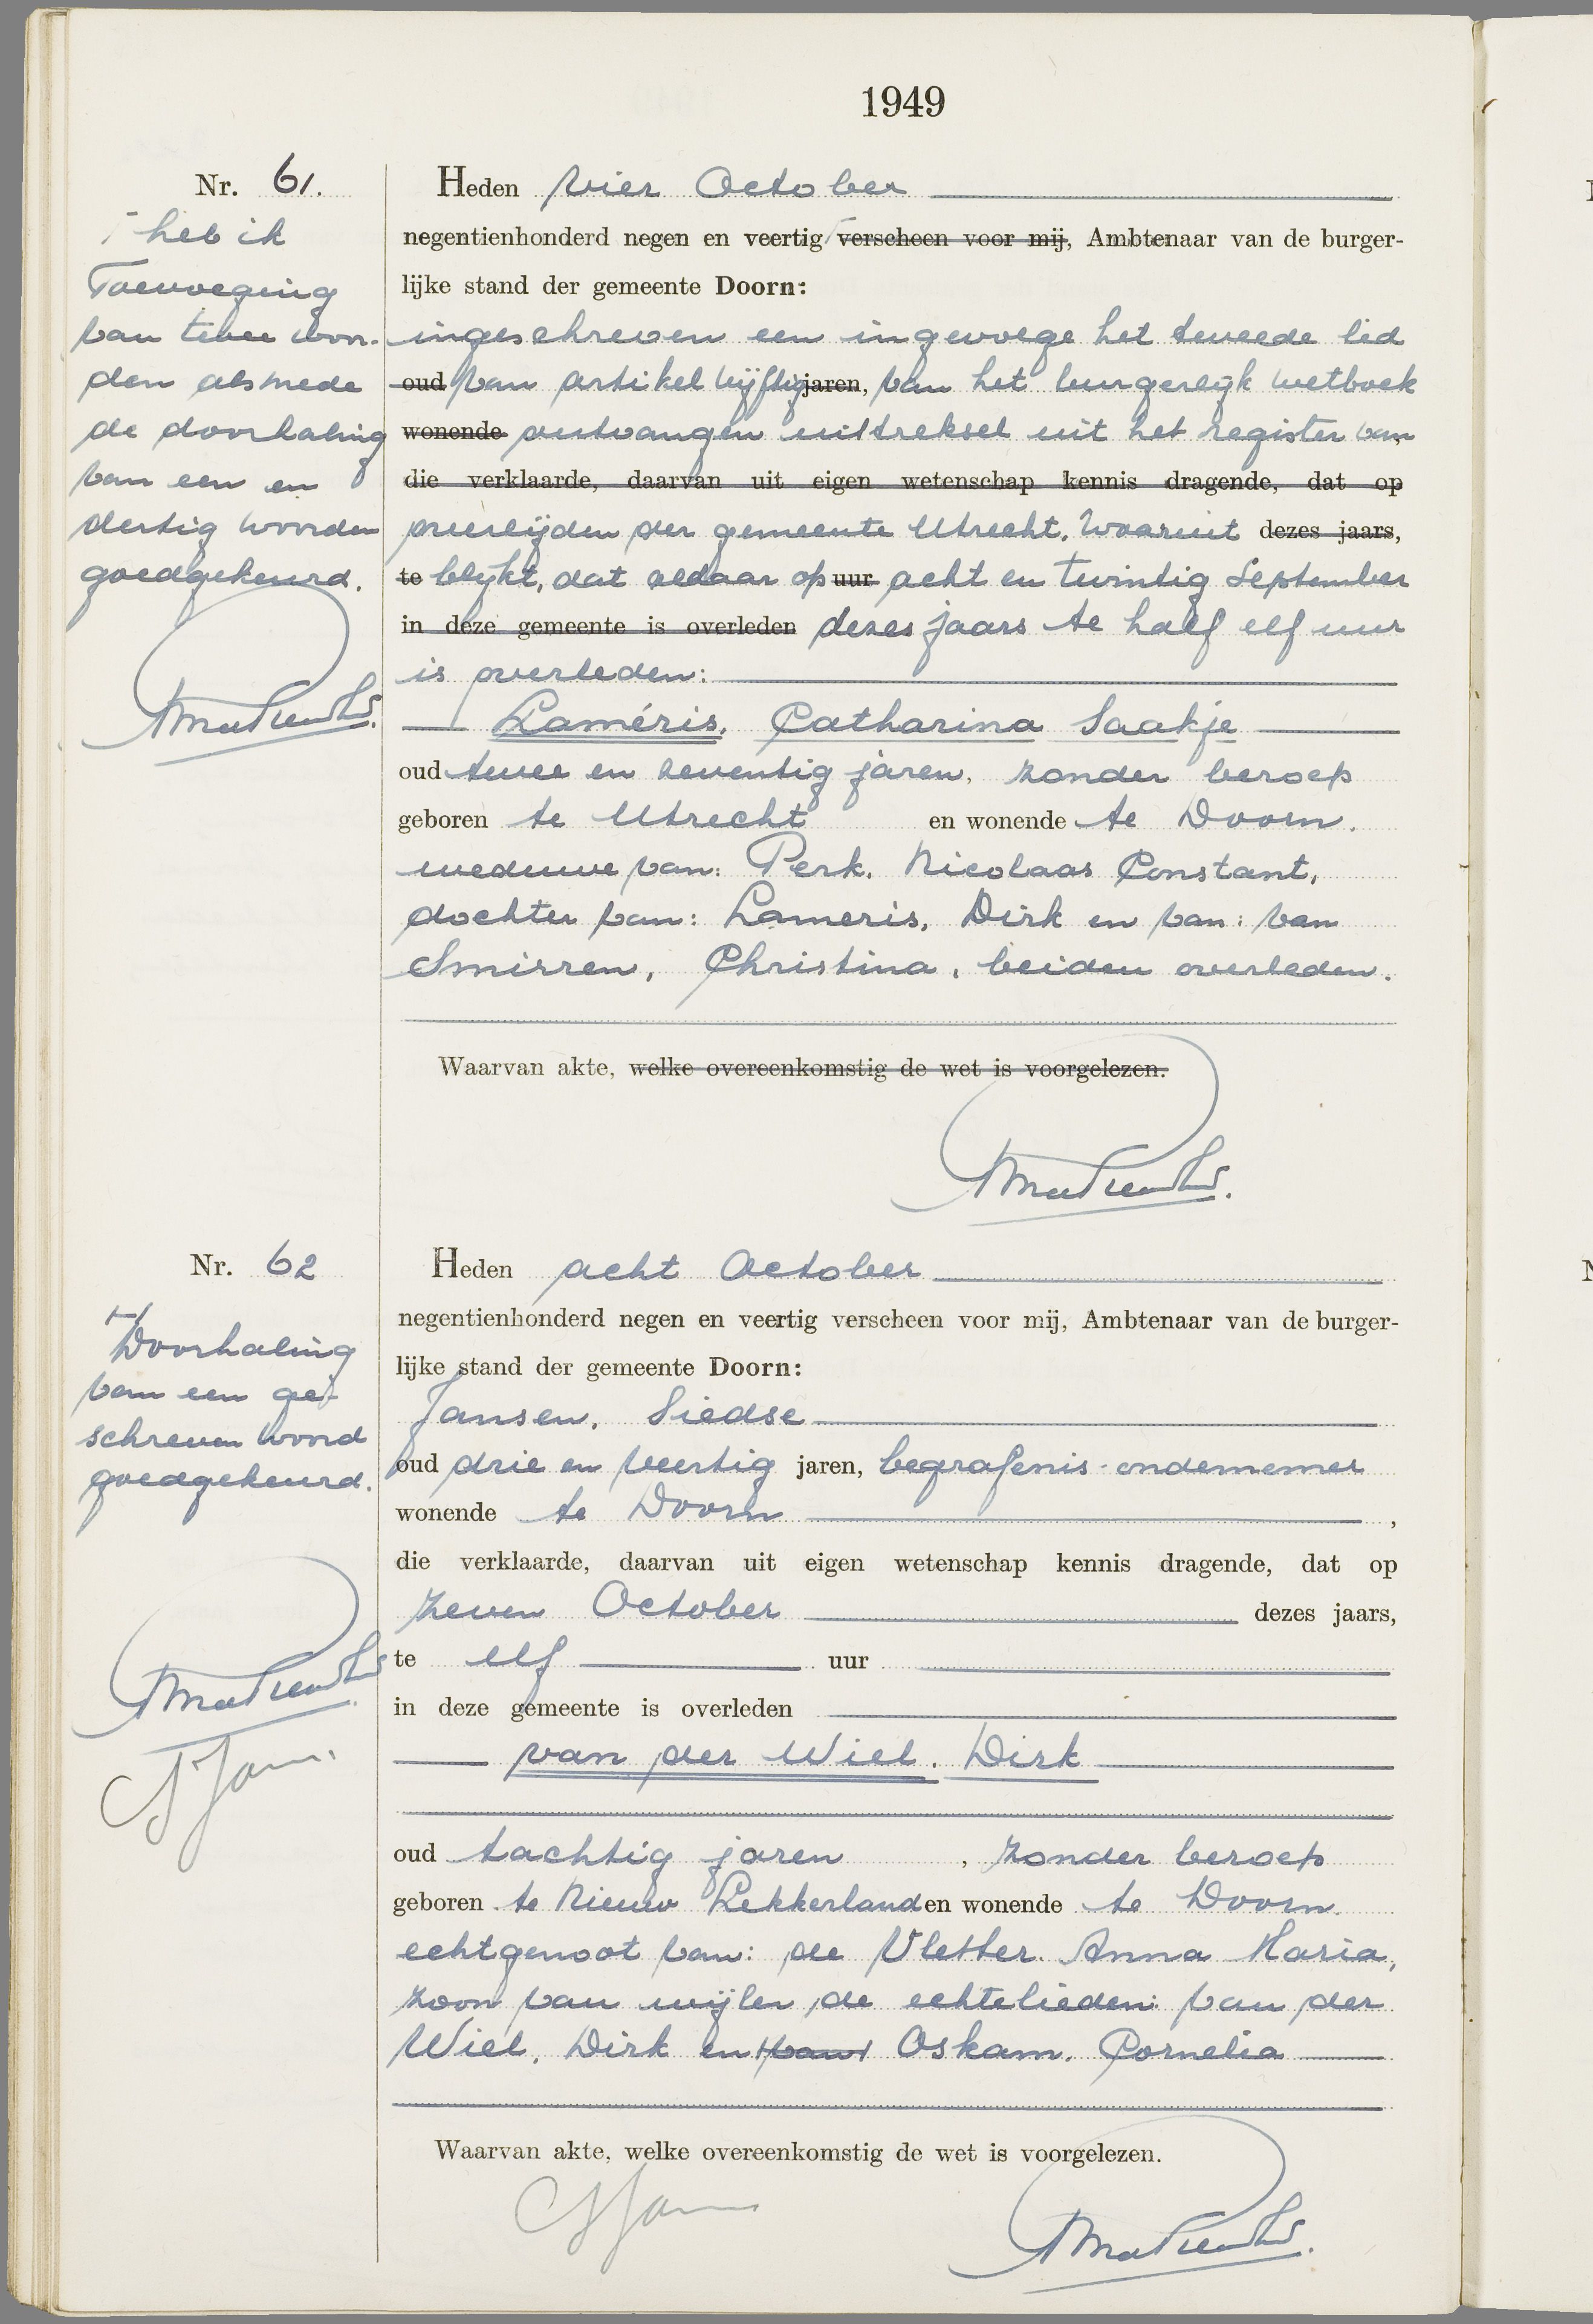 1949
Nr. 61.
⌈ heb ik
Toevoeging
van twee woor-
den alsmede
de doorhaling
van een en
dertig woorden
goedgekeurd.
Heden vier October
negentienhonderd negen en veertig ⌈ verscheen voor mij, Ambtenaar van de burger-
lijke stand der gemeente Doorn:
ingeschreven een ingevolge het tweede lid
oud van artikel vijftig jaren, van het burgerlijk wetboek
wonende ontvangen uittreksel uit het register van
die verklaarde, daarvan uit eigen wetenschap kennis dragende, dat op
overlijden der gemeente Utrecht, waaruit dezes jaars,
te blijkt, dat aldaar op uur acht en twintig September
in deze gemeente is overleden dezes jaars te half elf uur
is overleden:
Laméris, Catharina Saakje
oud twee en zeventig jaren, zonder beroep
geboren te Utrecht en wonende te Doorn.
weduwe van: Perk, Nicolaas Constant,
dochter van: Lameris, Dirk en van: van
Smirren, Christina, beiden overleden.
Waarvan akte, welke overeenkomstig de wet is voorgelezen.
Nr. 62
Doorhaling
van een ge-
schreven woord
goedgekeurd.
Heden acht October
negentienhonderd negen en veertig verscheen voor mij, Ambtenaar van de burger-
lijke stand der gemeente Doorn:
Jansen, Siedse
oud drie en veertig jaren, begrafenis-ondernemer
wonende te Doorn ,
die verklaarde, daarvan uit eigen wetenschap kennis dragende, dat op
zeven October dezes jaars,
te elf uur
in deze gemeente is overleden
van der Wiel, Dirk
oud tachtig jaren , zonder beroep
geboren te Nieuw Lekkerland en wonende te Doorn.
echtgenoot van: de Vletter, Anna Maria,
zoon van wijlen de echtelieden: van der
Wiel, Dirk en van Oskam, Cornelia
Waarvan akte, welke overeenkomstig de wet is voorgelezen.